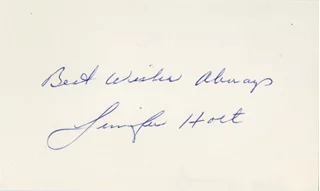 Best Wishes Always
Jennifer Holt